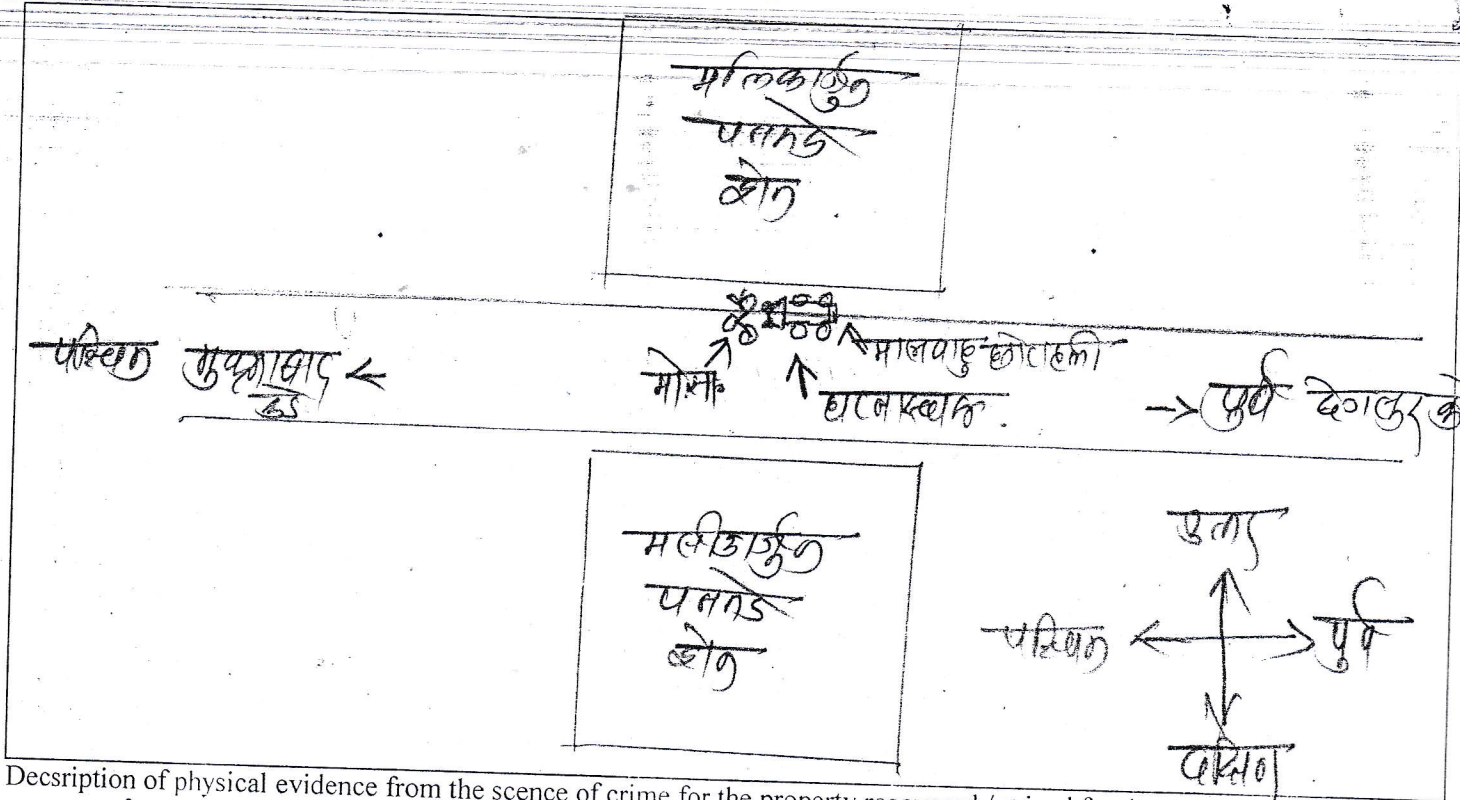 मलिकार्जुन
पतमडे
शेत
पश्चिम मुक्रमाबाद ←
कडे
मोसा
मालवाहु छोटाहत्ती
घटनास्थळ.
→ पुर्व देगलुर के
मलीकार्जुन
पतमडे
शेत
उत्तर
पश्चिम
पुर्व
दक्षिण
Decsription of physical evidence from the scence of crime for the property